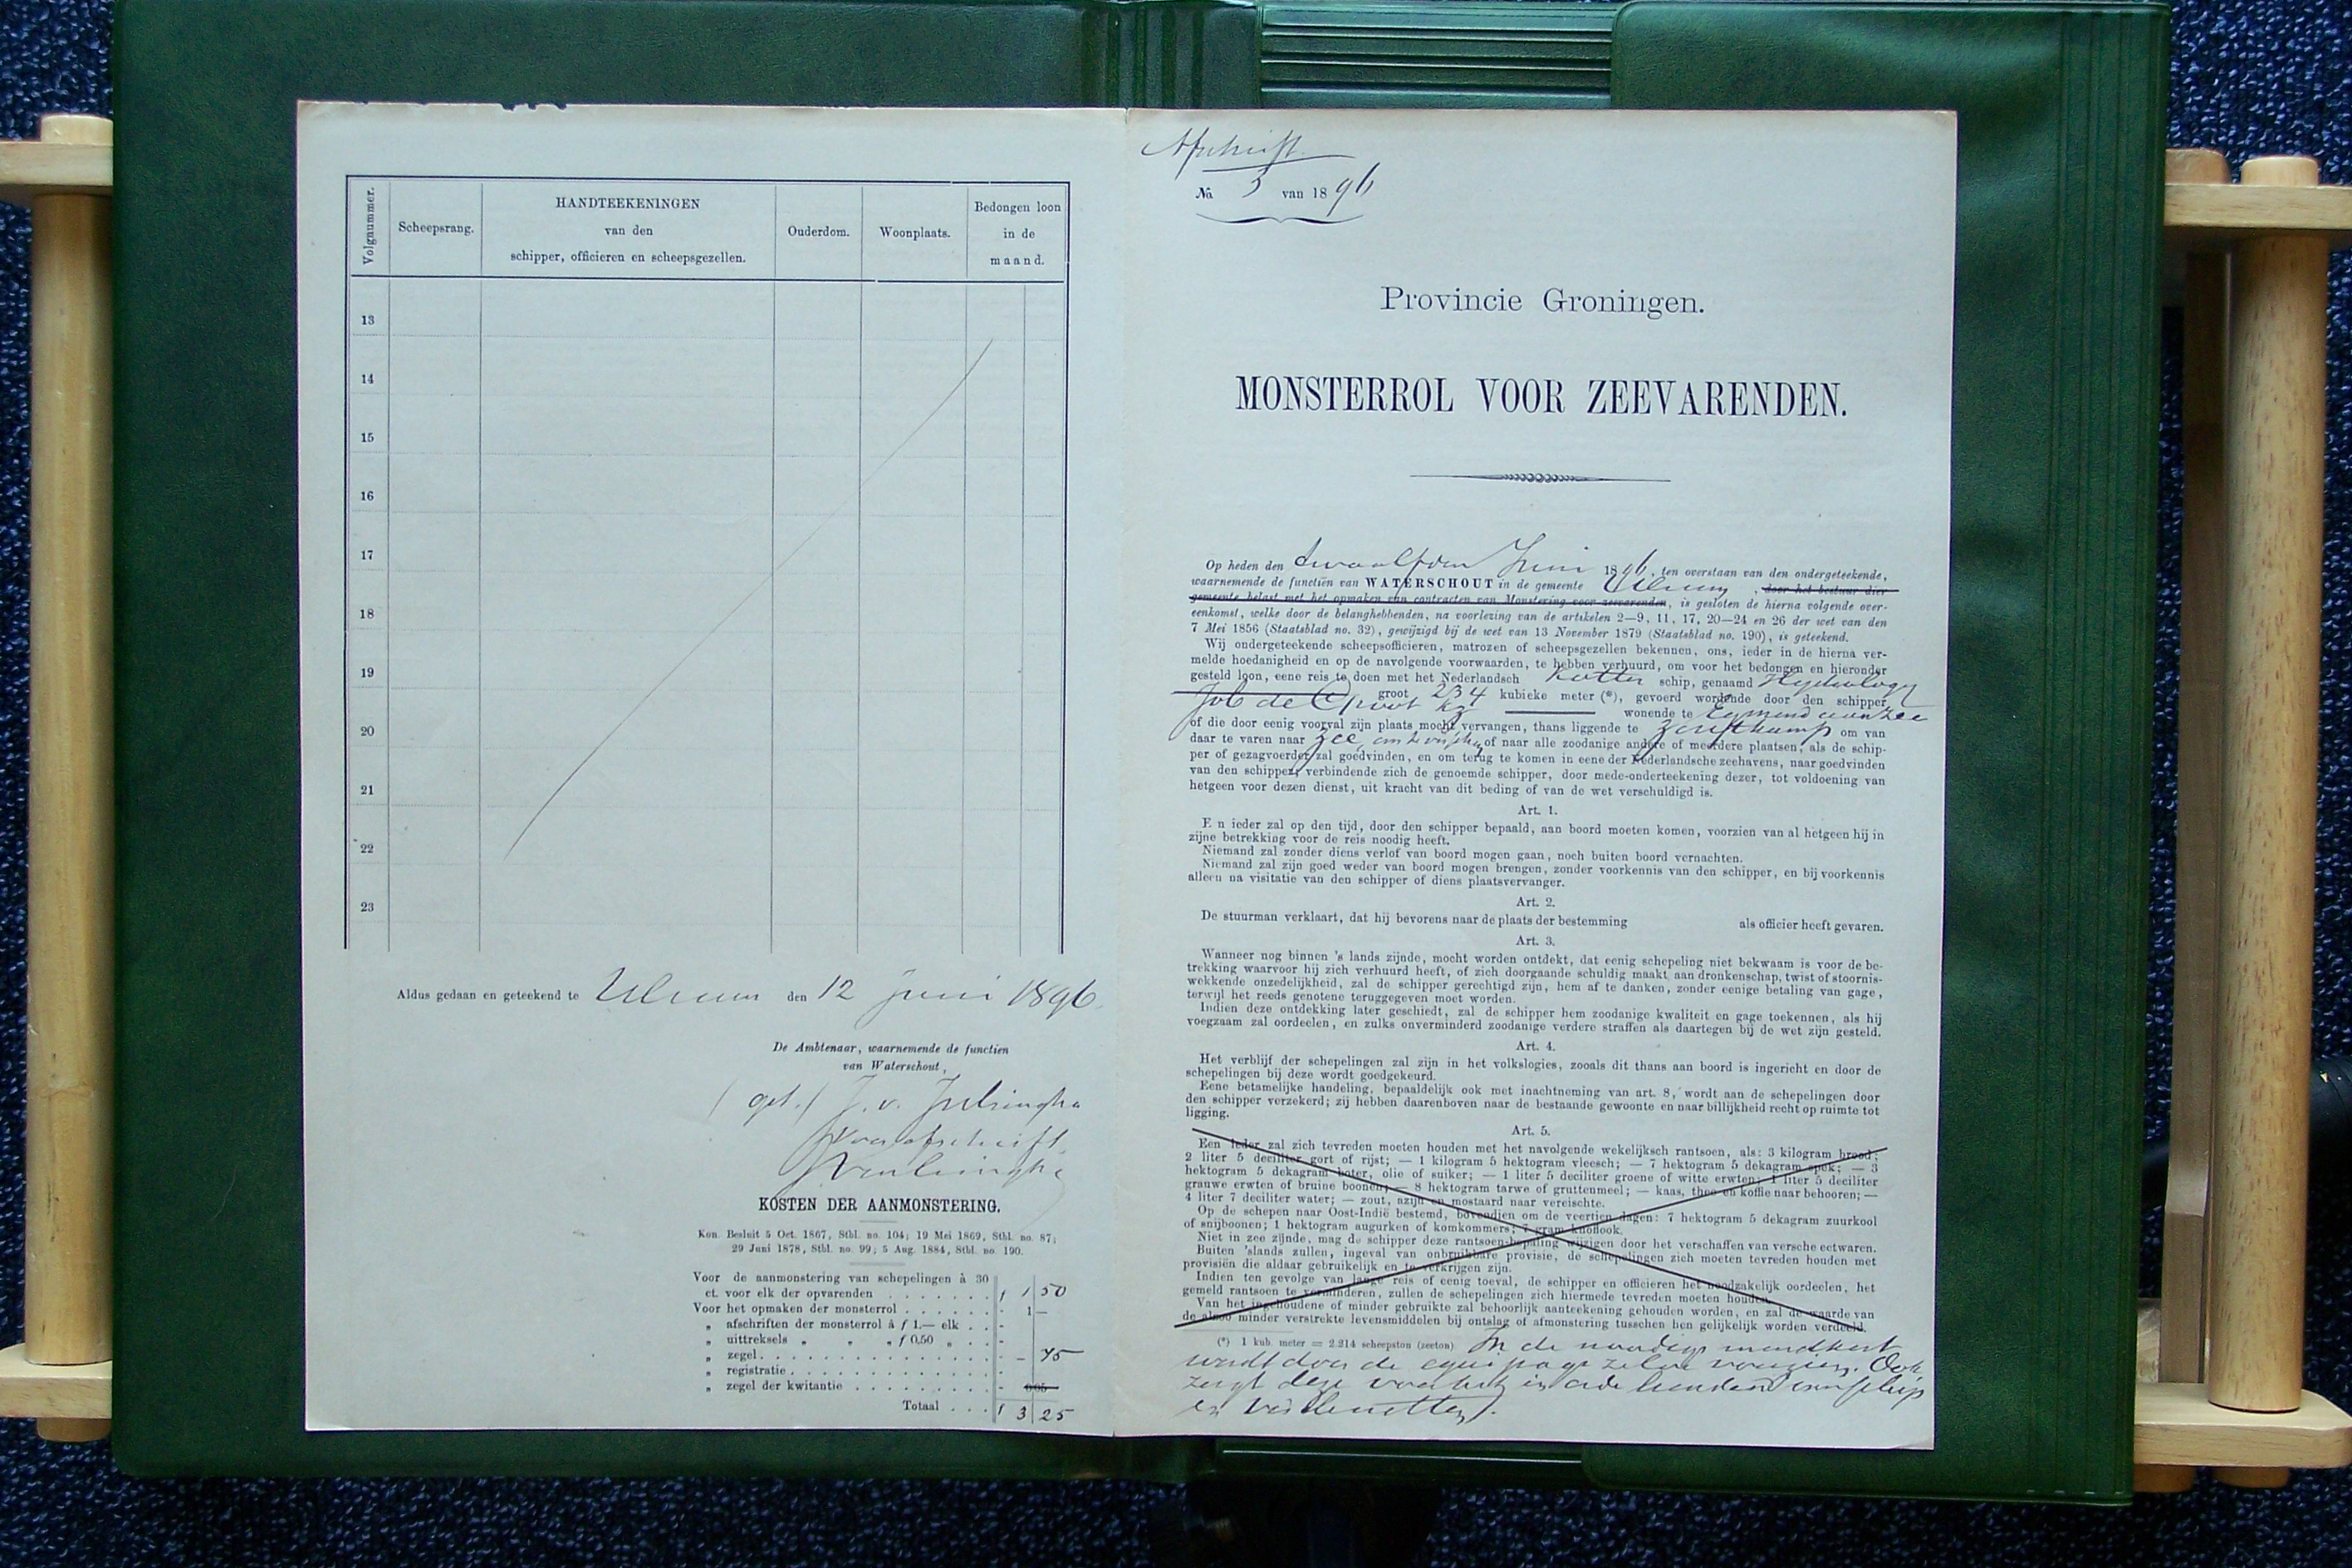 Volgnummer.
Scheepsrang.
HANDTEEKENINGEN
van den
schipper, officieren en scheepsgezellen.
Ouderdom.
Woonplaats.
Bedongen loon
in de
maand.
13
14
15
16
17
18
19
20
21
22
23
Aldus gedaan en geteekend te Ulrum den 12 Juni 1896.
De Ambtenaar, waarnemende de functien
van Waterschout,
(get.) J. v.
Voor afschrift
KOSTEN DER AANMONSTERING.
Kon. Besluit 5 Oct. 1867, Stbl. no. 104; 19 Mei 1869, Stbl. no. 87;
29 Juni 1878, Stbl. no. 99; 5 Aug. 1884, Stbl. no. 190.
Voor de aanmonstering van schepelingen à 30
ct. voor elk der opvarenden . . . . . . . . f 1 50
Voor het opmaken der monsterrol . . . . . . - 1 —
„ afschriften der monsterrol à f 1.— elk . . -
„ uittreksels „ „ „ f 0.50 „ . . -
„ zegel . . . . . . . . . . . . . . - – 75
„ registratie . . . . . . . . . . . . -
„ zegel der kwitantie . . . . . . . . . - 0.05
Totaal . . . f 3 25
Afschrift.
No 5 van 1896
Provincie Groningen.
MONSTERROL VOOR ZEEVARENDEN.
Op heden den twaalfden Juni 1896, ten overstaan van den ondergeteekende,
waarnemende de functiën van WATERSCHOUT in de gemeente Ulrum, door het bestuur dier
gemeente belast met het opmaken van contracten van Monstering voor zeevarenden, is gesloten de hierna volgende over-
eenkomst, welke door de belanghebbenden, na voorlezing van de artikelen 2—9, 11, 17, 20—24 en 26 der wet van den
7 Mei 1856 (Staatsblad no. 32), gewijzigd bij de wet van 13 November 1879 (Staatsblad no. 190), is geteekend.
Wij ondergeteekende scheepsofficieren, matrozen of scheepsgezellen bekennen, ons, ieder in de hierna ver-
melde hoedanigheid en op de navolgende voorwaarden, te hebben verhuurd, om voor het bedongen en hieronder
gesteld loon, eene reis te doen met het Nederlandsch Kotter schip, genaamd
groot 234 kubieke meter (*), gevoerd wordende door den schipper
Job de Groot Kz wonende te Egmond aan Zee
of die door eenig voorval zijn plaats mocht vervangen, thans liggende te Zoutkamp om van
daar te varen naar Zee, of naar alle zoodanige andere of meerdere plaatsen, als de schip-
per of gezagvoerder zal goedvinden, en om terug te komen in eene der Nederlandsche zeehavens, naar goedvinden
van den schipper, verbindende zich de genoemde schipper, door mede-onderteekening dezer, tot voldoening van
hetgeen voor dezen dienst, uit kracht van dit beding of van de wet verschuldigd is.
Art. 1.
E n ieder zal op den tijd, door den schipper bepaald, aan boord moeten komen, voorzien van al hetgeen hij in
zijne betrekking voor de reis noodig heeft.
Niemand zal zonder diens verlof van boord mogen gaan, noch buiten boord vernachten.
Niemand zal zijn goed weder van boord mogen brengen, zonder voorkennis van den schipper, en bij voorkennis
alleen na visitatie van den schipper of diens plaatsvervanger.
Art. 2.
De stuurman verklaart, dat hij bevorens naar de plaats der bestemming als officier heeft gevaren.
Art. 3.
Wanneer nog binnen 's lands zijnde, mocht worden ontdekt, dat eenig schepeling niet bekwaam is voor de be-
trekking waarvoor hij zich verhuurd heeft, of zich doorgaande schuldig maakt aan dronkenschap, twist of stoornis-
wekkende onzedelijkheid, zal de schipper gerechtigd zijn, hem af te danken, zonder eenige betaling van gage,
terwijl het reeds genotene teruggegeven moet worden.
Indien deze ontdekking later geschiedt, zal de schipper hem zoodanige kwaliteit en gage toekennen, als hij
voegzaam zal oordeelen, en zulks onverminderd zoodanige verdere straffen als daartegen bij de wet zijn gesteld.
Art. 4.
Het verblijf der schepelingen zal zijn in het volkslogies, zooals dit thans aan boord is ingericht en door de
schepelingen bij deze wordt goedgekeurd.
Eene betamelijke handeling, bepaaldelijk ook met inachtneming van art. 8, wordt aan de schepelingen door
den schipper verzekerd; zij hebben daarenboven naar de bestaande gewoonte en naar billijkheid recht op ruimte tot
ligging.
Art. 5.
Een ieder zal zich tevreden moeten houden met het navolgende wekelijksch rantsoen, als: 3 kilogram brood;
2 liter 5 deciliter gort of rijst; — 1 kilogram 5 hektogram vleesch; — 7 hektogram 5 dekagram spek; — 3
hektogram 5 dekagram boter, olie of suiker; — 1 liter 5 deciliter groene of witte erwten; 1 liter 5 deciliter
grauwe erwten of bruine boonen; — 8 hektogram tarwe of gruttenmeel; — kaas, thee en koffie naar behooren; —
4 liter 7 deciliter water; — zout, azijn en mostaard naar vereischte.
Op de schepen naar Oost-Indië bestemd, bovendien om de veertien dagen: 7 hektogram 5 dekagram zuurkool
of snijboonen; 1 hektogram augurken of komkommers; 7 gram knoflook.
Niet in zee zijnde, mag de schipper deze rantsoen-bepaling wijzigen door het verschaffen van versche eetwaren.
Buiten 'slands zullen, ingeval van onbruikbare provisie, de schepelingen zich moeten tevreden houden met
provisiën die aldaar gebruikelijk en te verkrijgen zijn.
Indien ten gevolge van lange reis of eenig toeval, de schipper en officieren het noodzakelijk oordeelen, het
gemeld rantsoen te verminderen, zullen de schepelingen zich hiermede tevreden moeten houden.
Van het ingehoudene of minder gebruikte zal behoorlijk aanteekening gehouden worden, en zal de waarde van
de alzoo minder verstrekte levensmiddelen bij ontslag of afmonstering tusschen hen gelijkelijk worden verdeeld.
(*) 1 kub. meter = 2.214 scheepston (zeeton) In de noodige mondkost
wordt door de equipage zelve voorzien. Ook
zorgt deze voor het
en